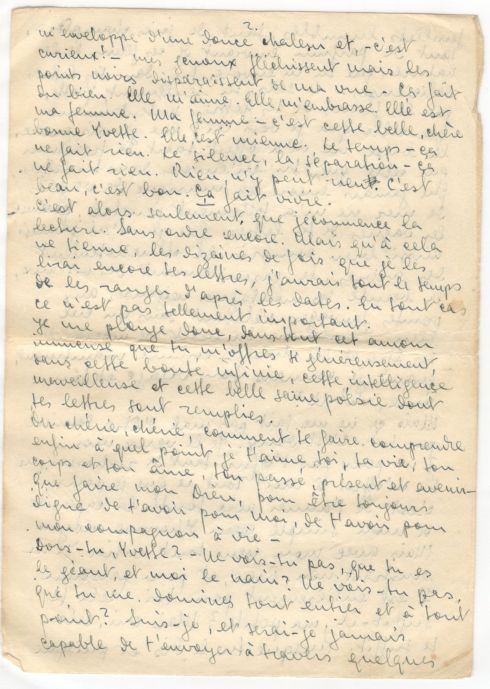 2.
m'enveloppe d'une douce chaleur et, - c'est
curieux! - mes genoux fléchissent mais les
points noirs disparaissent de ma vue - Ça fait
du bien. Elle m'aime. Elle m'embrasse. Elle est
ma femme. Ma femme - c'est cette belle, chère
bonne Yvette. Elle est mienne. Le temps - ça
ne fait rien. Le silence, la séparation - ça
ne fait rien. Rien n'y peut rien. C'est
beau, c'est bon. Ça fait vivre.
C'est alors seulement, que je commence la
lecture. Sans ordre encore. Mais qu'à cela
ne tienne, les dizaines de fois que je les
lirai encore tes lettres, j'aurai tout le temps
de les ranger d'après les dates. En tout cas
ce n'est pas tellement important.
Je me plonge donc, dans tout cet amour
immense que tu m'offres si généreusement
dans cette bonté infinie, cette intelligence
merveilleuse et cette belle saine poésie dont
tes lettres sont remplies.
Oh chérie, chérie, comment te faire comprendre
enfin à quel point je t'aime toi, ta vie, ton
corps et ton âme, ton passé, présent et avenir-
que faire mon Dieu, pour être toujours
digne de t'avoir pour moi, de t'avoir pour
mon compagnon à vie -
Dors-tu, Yvette? - Ne vois-tu pas, que tu es
le géant, et moi le nain? Ne vois-tu pas,
que tu me domines tout entier et à tout
point? Suis-je, et serai-je jamais
capable de t'envoyer à travers quelques